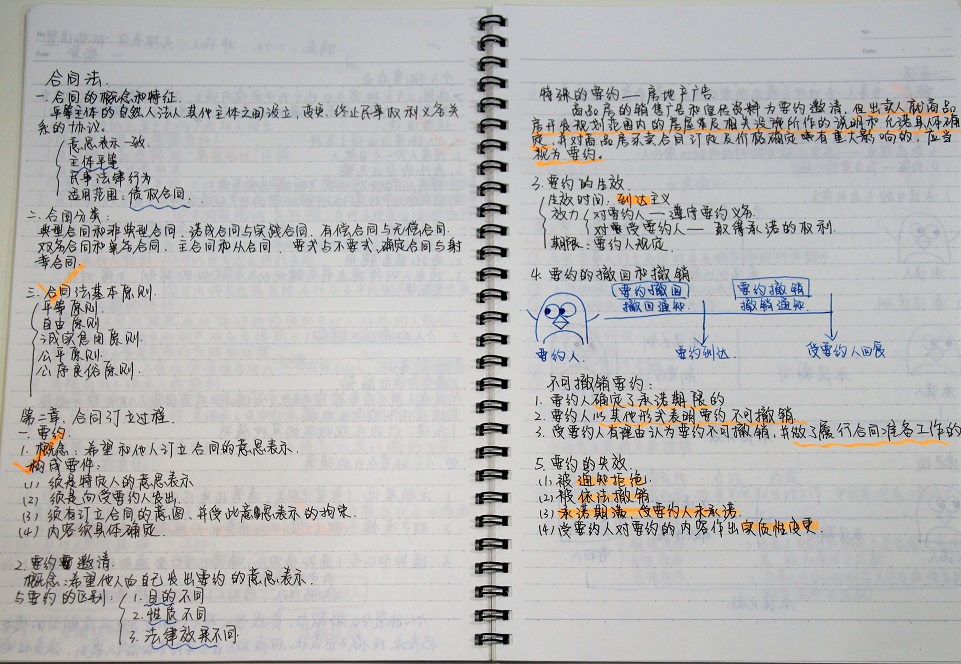 合同法.
一.合同的概念和特征.
平等主体的自然人法人,其他主体之间设立,变更,终止民事权利义务关
系的协议.
意思表示一致.
主体平等
民事法律行为
适用范围:债权合同.
二.合同分类:
典型合同和非典型合同,诺成合同与实践合同,有偿合同与无偿合同.
双务合同和单务合同,主合同和从合同,要式与不要式,确定合同与射
幸合同.
三.合同法基本原则.
平等原则.
自由原则
诚实信用原则.
公平原则.
公序良俗原则.
第二章.合同订立过程.
一.要约
1.概念:希望和他人订立合同的意思表示.
构成要件:
(1) 须是特定人的意思表示
(2) 须是向受要约人发出.
(3) 须有订立合同的意图,并受此意思表示的拘束.
(4) 内容须具体确定.
2.要约邀请.
概念:希望他人向自己发出要约的意思表示.
与要约的区别:
1.目的不同
2.性质不同
3.法律效果不同.
特殊的要约——房地产广告.
商品房的销售广告和宣传资料为要约邀请,但出卖人就商品
房开发规划范围内的房屋及相关设施所作的说明和允诺具体确
定,并对商品房买卖合同订立及价格确定有重大影响的,应当
视为要约。
3.要约的生效.
生效时间:到达主义
效力
对要约人——遵守要约义务.
对受要约人——取得承诺的权利.
期限:要约人规定.
4.要约的撤回和撤销.
要约撤回
撤回通知
要约撤销
撤销通知
要约人
要约到达
受要约人回复
不可撤销要约:
1.要约人确定了承诺期限的
2.要约人以其他形式表明要约不可撤销.
3.受要约人有理由认为要约不可撤销,并做了履行合同准备工作的
5.要约的失效.
(1)被通知拒绝.
(2)被依法撤销
(3)承诺期满,受要约人未承诺.
(4)受要约人对要约的内容作出实质性变更.